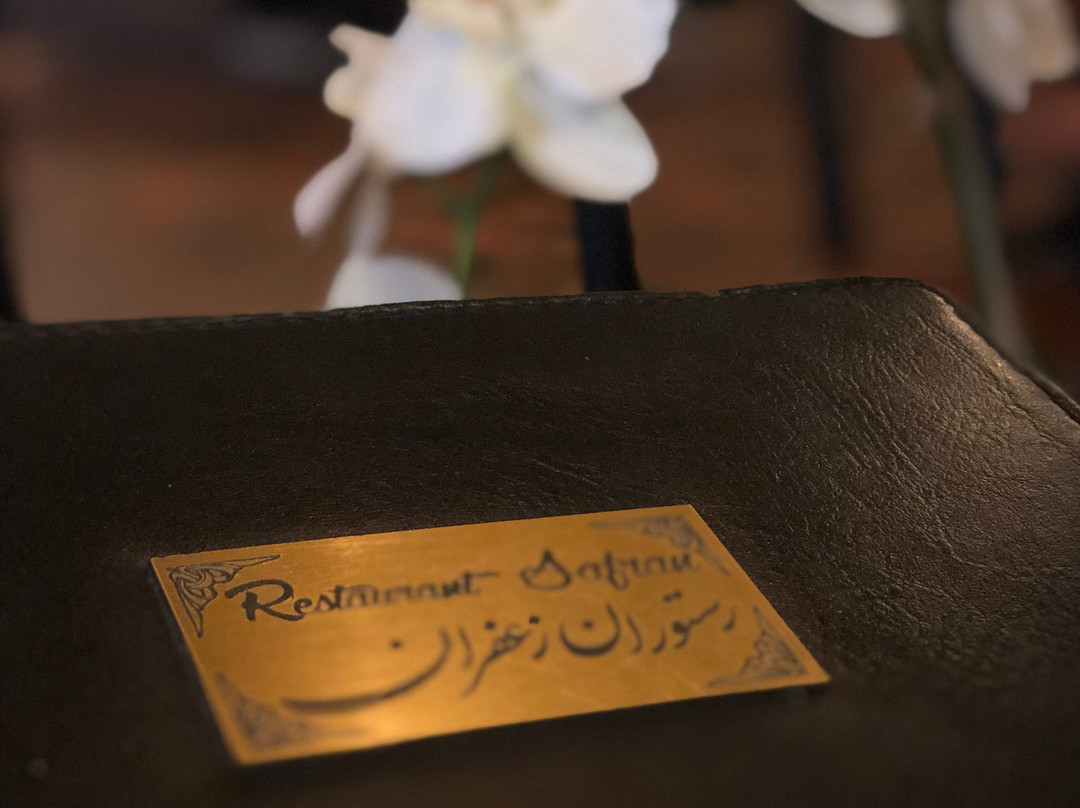 Restaurant Safran
رستوران زعفران